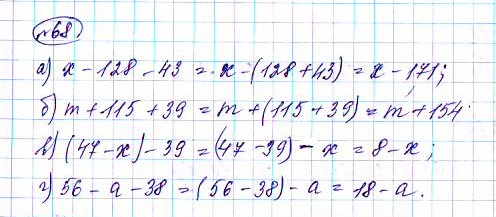 №68
а) x - 128 - 43 = x - (128 + 43) = x - 171;
б) m + 115 + 39 = m + (115 + 39) = m + 154;
в) (47 - x) - 39 = (47 - 39) - x = 8 - x;
г) 56 - a - 38 = (56 - 38) - a = 18 - a.